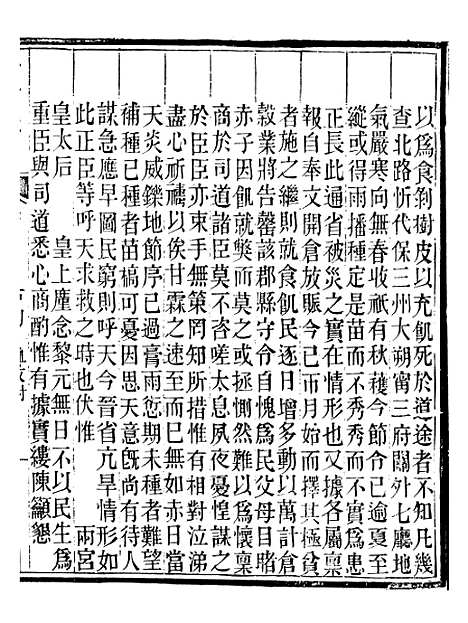 以爲食剥樹皮以充飢死於道途者不知凡幾
查北路忻代保三州大朔甯三府關外七廳地
氣嚴寒向無春收祇有秋穫今節令已逾夏至
縱或得雨播種定是苗而不秀秀而不實爲患
正長此通省被災之實在情形也又據各屬稟
報自奉文開倉放賑今已帀月始而擇其極貧
者施之繼則就食飢民逐日增多動以萬計倉
穀業將告罄該郡縣守令自愧爲民父母目睹
赤子因飢就斃而莫之或拯惻然難以爲懷稟
商於司道諸臣莫不咨嗟太息夙夜憂惶謀之
於臣臣亦束手無策罔知所措惟有相對泣涕
盡心祈禱以俟甘霖之速至而已無如赤日當
天炎威鑠地節序已過膏雨愆期未種者難望
補種已種者苗槁可憂因思天意旣尚有待人
謀急應早圖民窮則呼天今晉省亢旱情形如
此正臣等呼天求救之時也伏惟　　兩宮
皇太后　皇上塵念黎元無日不以民生爲
重臣與司道悉心商酌惟有據實縷陳籲懇